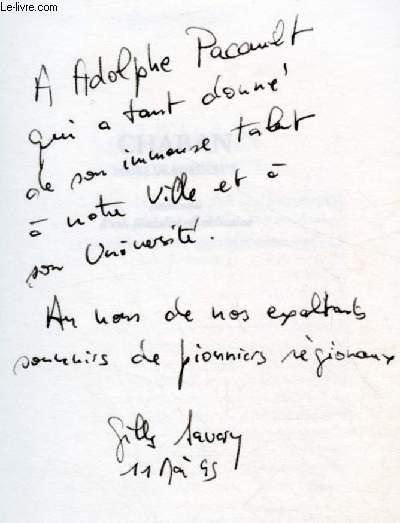 Le-livre.com
A Adolphe Pacault
qui a tant donné
de son immense talent
à notre Ville et à
son Université.
Au nom de nos exaltants
souvenirs de pionniers régionaux
Gilles Savary
11 95
CHABAN